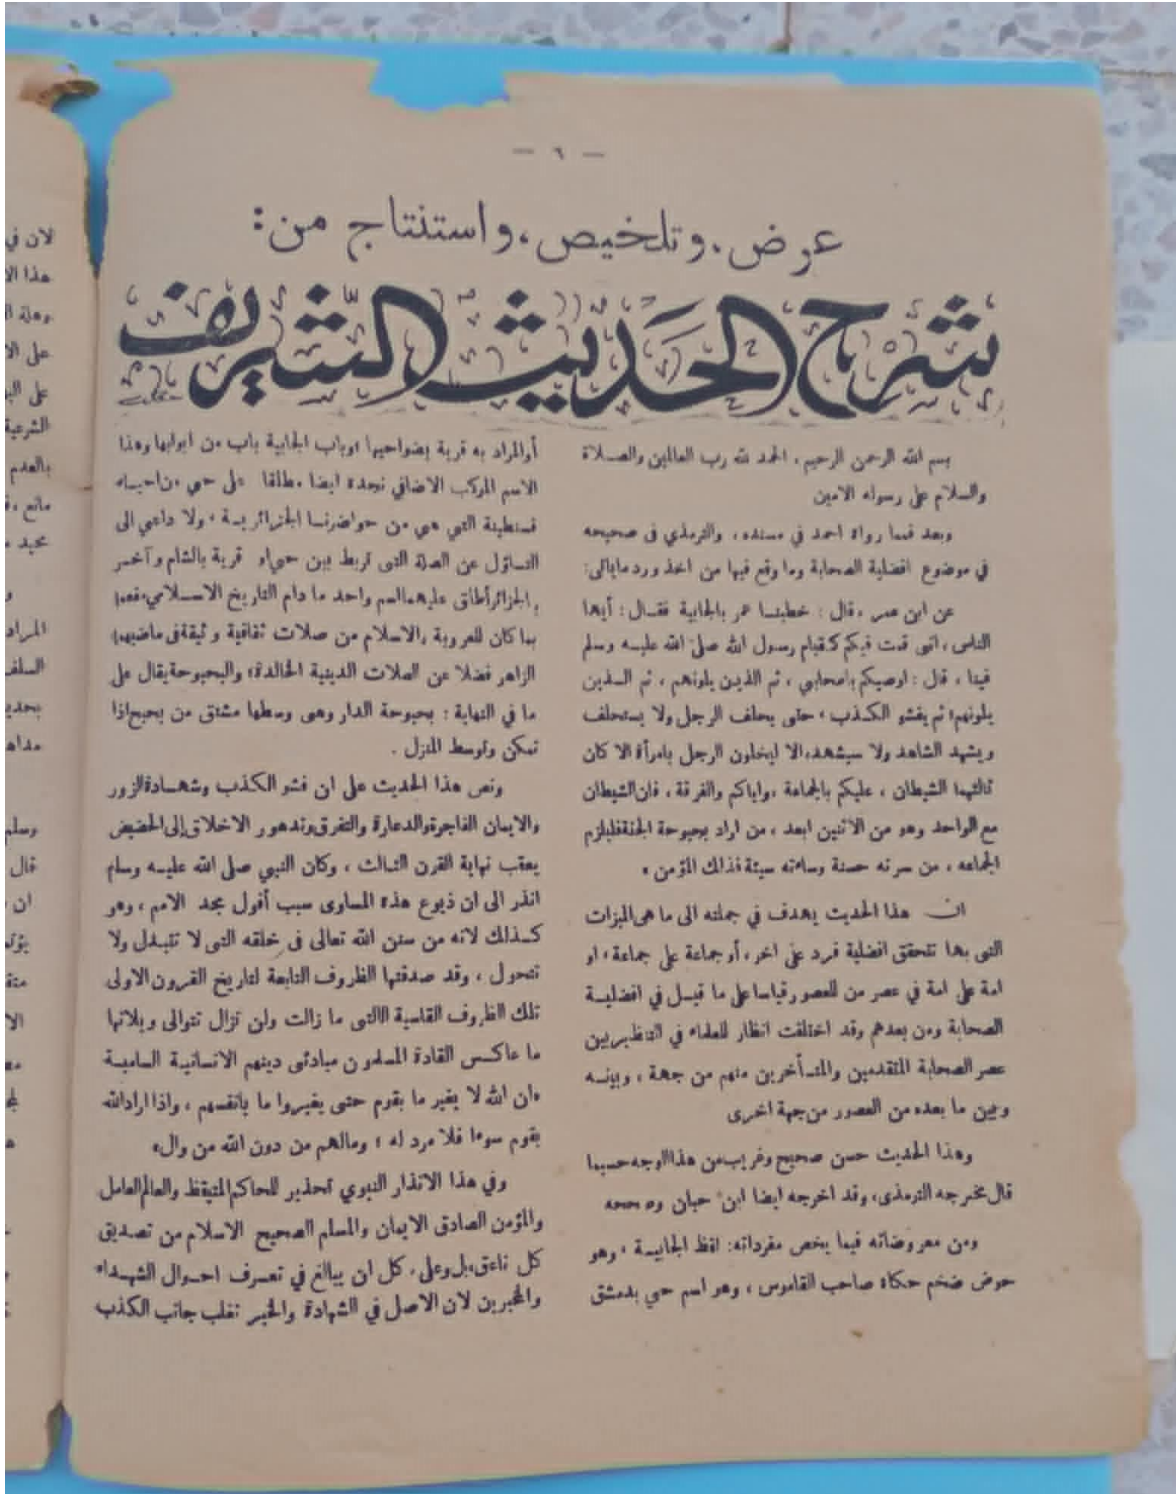 — ٦ —
عرض، وتلخيص، واستنتاج من:
شرح الحديث الشريف
بسم الله الرحمن الرحيم، الحمد لله رب العالمين والصلاة
والسلام على رسوله الامين
وبعد فمما رواه احمد في مسنده، والترمذي فى صحيحه
في موضوع افضلية الصحابة وما وقع فيها من اخذ ورد مايالى:
عن ابن عمر، قال: خطبنا عمر بالجابية فقال: أيها
الناس، انى قمت فيكم كقيام رسول الله صلى الله عليه وسلم
فينا، قال: اوصيكم باصحابي، ثم الذين يلونهم، ثم الذين
يلونهم، ثم يفشو الكذب، حتى يحلف الرجل ولا يستحلف
ويشهد الشاهد ولا سيشهد، الا لايخلون الرجل بامرأة الا كان
ثالثهما الشيطان، عليكم بالجماعة، واياكم والفرقة، فان الشيطان
مع الواحد وهو من الاثنين ابعد، من اراد بحبوحة الجنة فليلزم
الجماعه، من سرته حسنة وساءته سيئة فذالك المؤمن»
ان هذا الحديث يهدف في جملته الى ما هى الميزات
التى بها تتحقق افضلية فرد على اخر، أو جماعة على جماعة، او
امة على امة في عصر من للعصور قياسا على ما قيل في افضلية
الصحابة ومن بعدهم وقد اختلفت انظار للعلماء في التنظير بين
عصر الصحابة المتقدمين والمتأخرين منهم من جهة، وبينه
وبين ما بعده من العصور من جهة اخرى
وهذا الحديث حسن صحيح وغريب من هذا الوجه حسبما
قال مخرجه الترمذى، وقد اخرجه ايضا ابن حبان وصححه
ومن معروضاته فيما يخص مفرداته: لفظ الجابية، وهو
حوض ضخم حكاه صاحب القاموس، وهو اسم حي بدمشق
أو المراد به قرية بضواحيها وباب الجابية باب من ابوابها وهذا
الاسم المركب الاضافي نجده ايضا مطلقا على حي من احياء
قسنطينة التي هي من حواضرنا الجزائرية، ولا داعي الى
التساؤل عن الصلة التى تربط بين حي او قرية بالشام وآخر
بالجزائر أطلق عليهما اسم واحد ما دام التاريخ الاسلامي مفعما
بما كان للعروبة والاسلام من صلات ثقافية وثيقة في ماضيهما
الزاهر فضلا عن الصلات الدينية الخالدة، والبحبوحة يقال على
ما في النهاية: بحبوحة الدار وهى وسطها مشتق من بحبح اذا
تمكن وتوسط المنزل.
ونص هذا الحديث على ان فشو الكذب وشهادة الزور
والايمان الفاجرة والدعارة والتفرق وتدهور الاخلاق إلى الحضيض
يعقب نهاية القرن الثالث، وكان النبي صلى الله عليه وسلم
انذر الى ان ذيوع هذه المساوى سبب أفول مجد الامم، وهو
كذلك لانه من سنن الله تعالى فى خلقه التى لا تتبدل ولا
تتحول، وقد صدقتها الظروف التابعة لتاريخ القرون الاولى
تلك الظروف القاسية االتى ما زالت ولن تزال تتوالى ويلاتها
ما عاكس القادة المسلمون مبادئى دينهم الانسانية السامية
«ان الله لا يغير ما بقوم حتى يغيروا ما بانفسهم، واذا اراد الله
بقوم سوءا فلا مرد له، ومالهم من دون الله من وال»
وفي هذا الانذار النبوي تحذير للحاكم المتيقظ والعالم العامل
والمؤمن الصادق الايمان والمسلم الصحيح الاسلام من تصديق
كل ناعق، بل وعلى كل ان يبالغ في تعرف احوال الشهداء
والمخبرين لان الاصل في الشهادة والخبر تغلب جانب الكذب
لان في